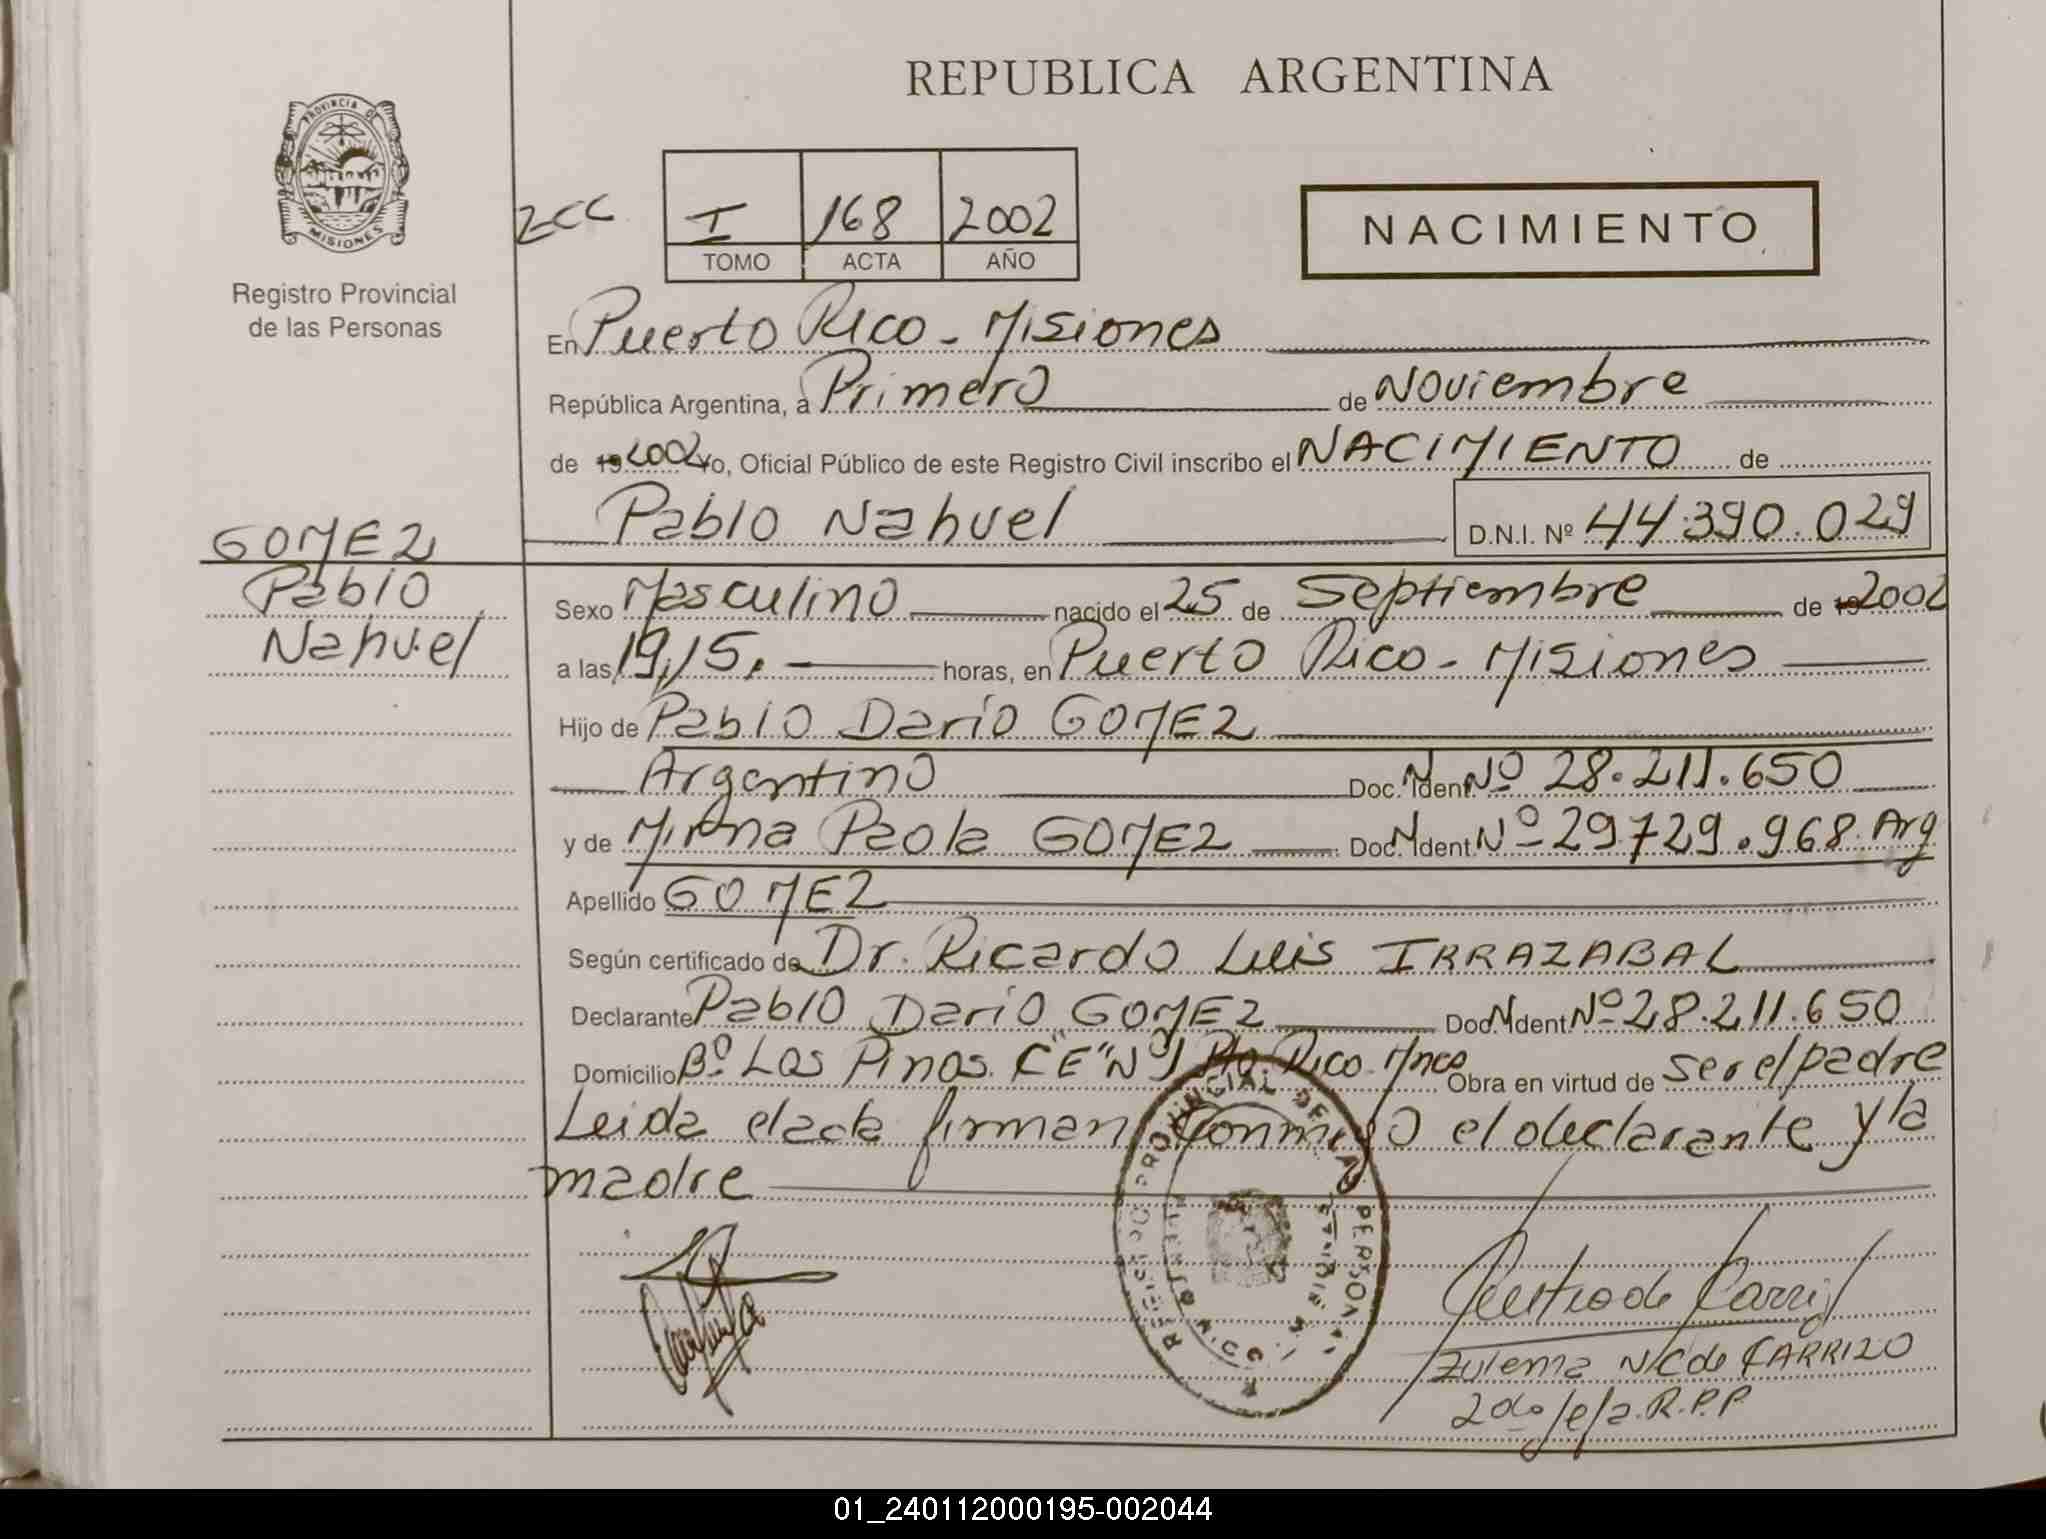 REPUBLICA ARGENTINA
PROVINCIA DE
MISIONES
Registro Provincial
de las Personas
I 168 2002
TOMO ACTA AÑO
NACIMIENTO
En Puerto Rico - Misiones
República Argentina, a Primero de Noviembre
de 19 2002 Yo, Oficial Público de este Registro Civil inscribo el NACIMIENTO de
Pablo Nahuel D.N.I. Nº 44.390.029
GOMEZ
Pablo
Nahuel
Sexo Masculino nacido el 25 de Septiembre de 19 2002
a las 19,15. horas, en Puerto Rico - Misiones
Hijo de Pablo Darío GOMEZ
Argentino Doc. Ident. Nº 28.211.650
y de Mirna Paola GOMEZ Doc. Ident. Nº 29.729.968. Arg
Apellido GOMEZ
Según certificado de Dr. Ricardo Luis IRRAZABAL
Declarante Pablo Darío GOMEZ Doc. Ident. Nº 28.211.650
Domicilio Bº Los Pinos. C "E" Nº Pto. Rico. Mnes Obra en virtud de ser el padre
Leida el acta firman conmigo el declarante y la
madre
REGISTRO PROVINCIAL DE LAS PERSONAS
Zulema N.C de CARRIZO
2do R.P.P.
01_240112000195-002044